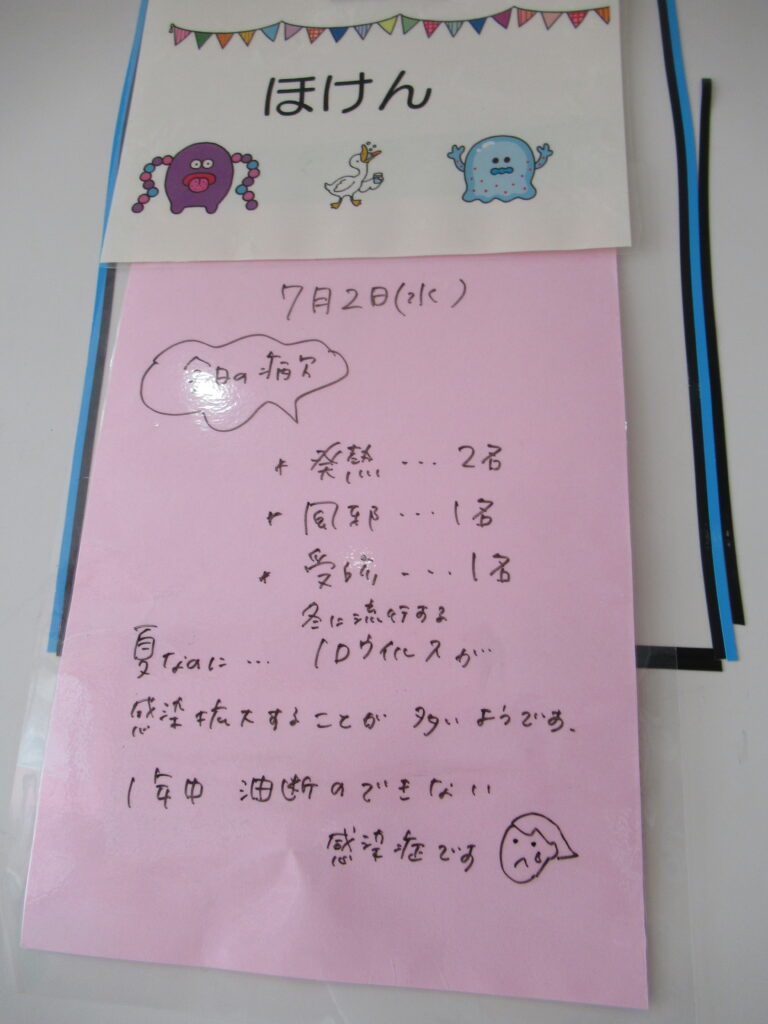 ほけん
7月2日(水)
今日の病欠
* 発熱 ... 2名
* 風邪 ... 1名
* 受診 ... 1名
冬に流行する
夏なのに... ロウイルスが
感染拡大することが多いようです。
1年中 油断のできない
感染症です